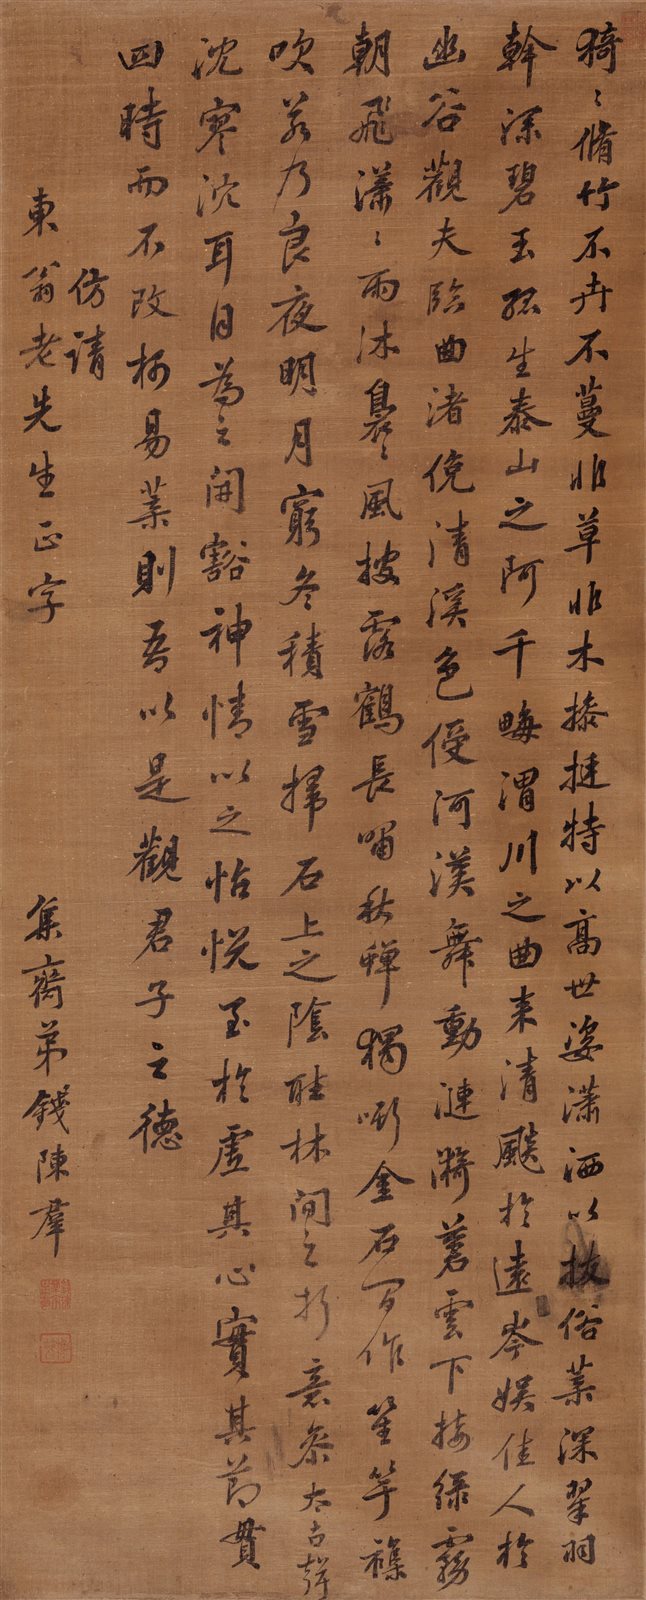 猗〻脩竹不卉不蔓非草非木操挺特以高世姿瀟洒以拔俗葉深翠羽
幹深碧玉孤生泰山之阿千畮渭川之曲来清飈於遠岑娱佳人於
幽谷觀夫臨曲渚俛清溪色侵河漢舞動漣漪蒼雲下接緑霧
朝飛瀟〻雨沐裊〻風披露鶴長嘯秋蟬獨嘶金石間作笙竽襍
吹若乃良夜明月窮冬積雪掃石上之陰聽林間之折意叅太古聲
沈寥泬耳目為之開豁神情以之怡悦至於虛其心實其節貫
四時而不改柯易葉則吾以是觀君子之德
仿請
東翁老先生正字
集齋弟錢陳羣